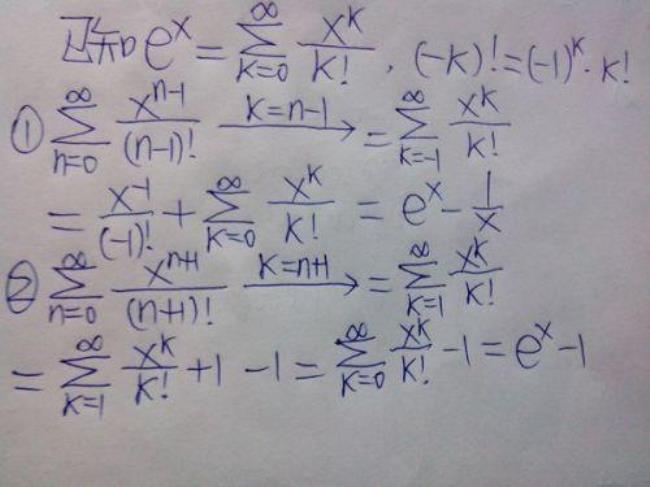 已知 e^x = ∑_{k=0}^{∞} x^k/k! , (-k)! = (-1)^k · k!
① ∑_{n=0}^{∞} x^{n-1}/(n-1)! —k=n-1→ = ∑_{k=-1}^{∞} x^k/k!
= x^{-1}/(-1)! + ∑_{k=0}^{∞} x^k/k! = e^x - 1/x
② ∑_{n=0}^{∞} x^{n+1}/(n+1)! —k=n+1→ = ∑_{k=1}^{∞} x^k/k!
= ∑_{k=1}^{∞} x^k/k! + 1 - 1 = ∑_{k=0}^{∞} x^k/k! - 1 = e^x - 1